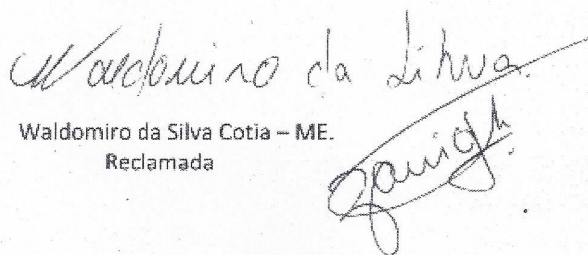 Waldomiro da Silva
Waldomiro da Silva Cotia – ME.
Reclamada